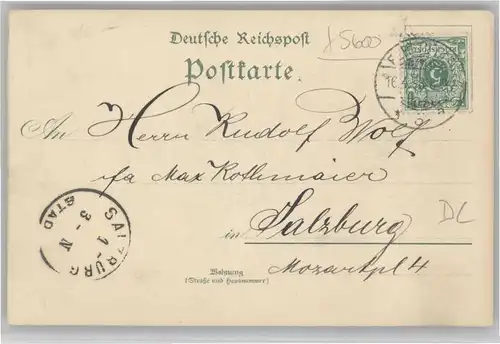 Deutsche Reichspost
J 5600
Postkarte.
An Herrn Rudolf Wolf
fa Max Rothmaier
in Salzburg
DL
Mozartpl 4
Wohnung
(Straße und Hausnummer)
SALZBURG
STADT
3 - N
5